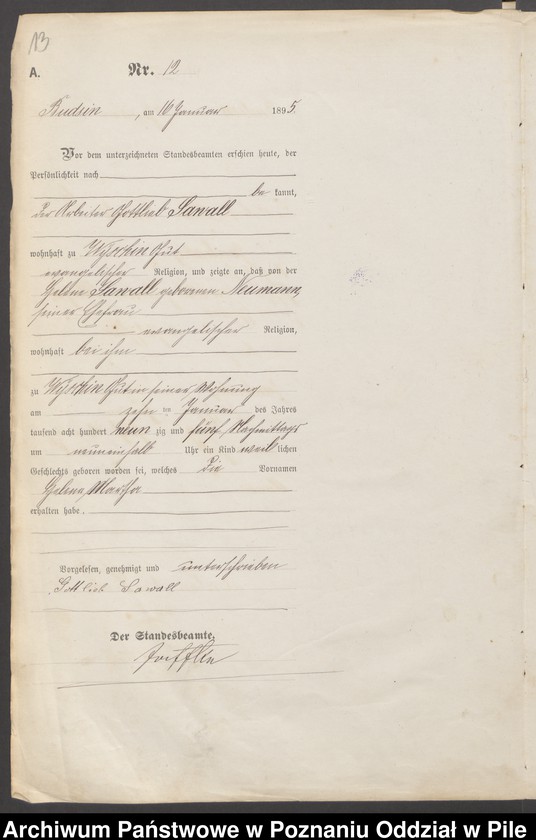 13
A. Nr. 12
Budsin, am 16 Januar 1895.
Vor dem unterzeichneten Standesbeamten erschien heute, der
Persönlichkeit nach
be kannt,
der Arbeiter Gottlieb Sawall
wohnhaft zu Wyschin Gut
evangelischer Religion, und zeigte an, daß von der
Helene Sawall geborenen Neumann,
seiner Ehefrau
evangelischer Religion,
wohnhaft bei ihm
zu Wyschin Gut in seiner Wohnung
am zehn ten Januar des Jahres
tausend acht hundert neun zig und fünf, Nachmittags
um neuneinhalb Uhr ein Kind weib lichen
Geschlechts geboren worden sei, welches die Vornamen
Helene, Martha
erhalten habe.
Vorgelesen, genehmigt und unterschrieben
Gottlieb Sawall
Der Standesbeamte.
Archiwum Państwowe w Poznaniu Oddział w Pile